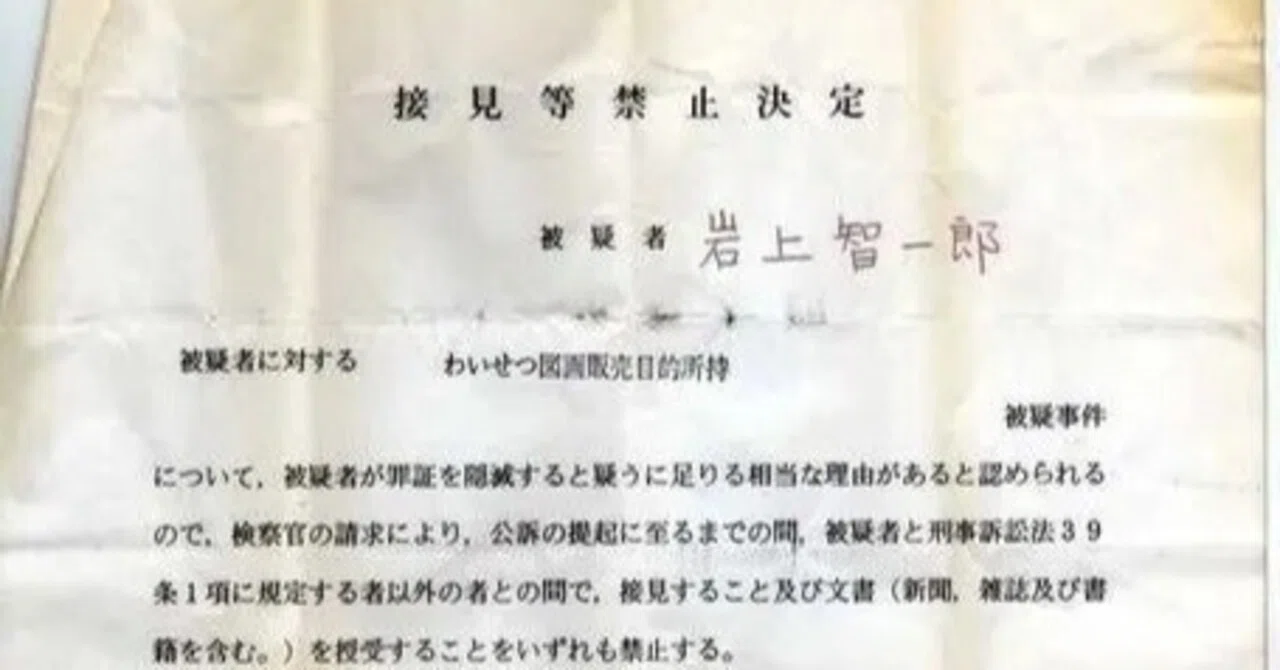 接見等禁止決定
被疑者 岩上智一郎
被疑者に対する わいせつ図画販売目的所持
被疑事件
について，被疑者が罪証を隠滅すると疑うに足りる相当な理由があると認められる
ので，検察官の請求により，公訴の提起に至るまでの間，被疑者と刑事訴訟法３９
条１項に規定する者以外の者との間で，接見すること及び文書（新聞，雑誌及び書
籍を含む。）を授受することをいずれも禁止する。